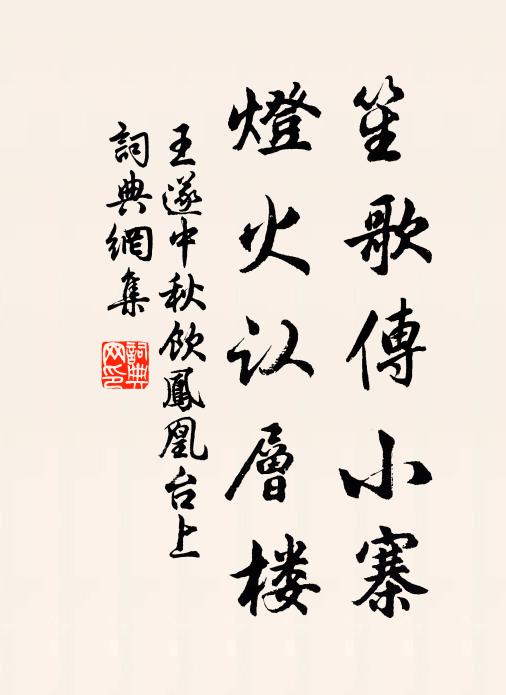 笙歌傳小寨
燈火认層楼
王遂中秋飲鳳凰台上
詞典網集
詞典网印